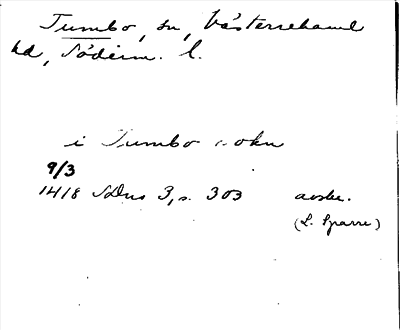 Tumbo, sn, Västerrekarne
hd, Söderm. l.
i Tumbo sokn
9/3
1418 SDns 3, s. 303 avskr.
(L. Sparre)